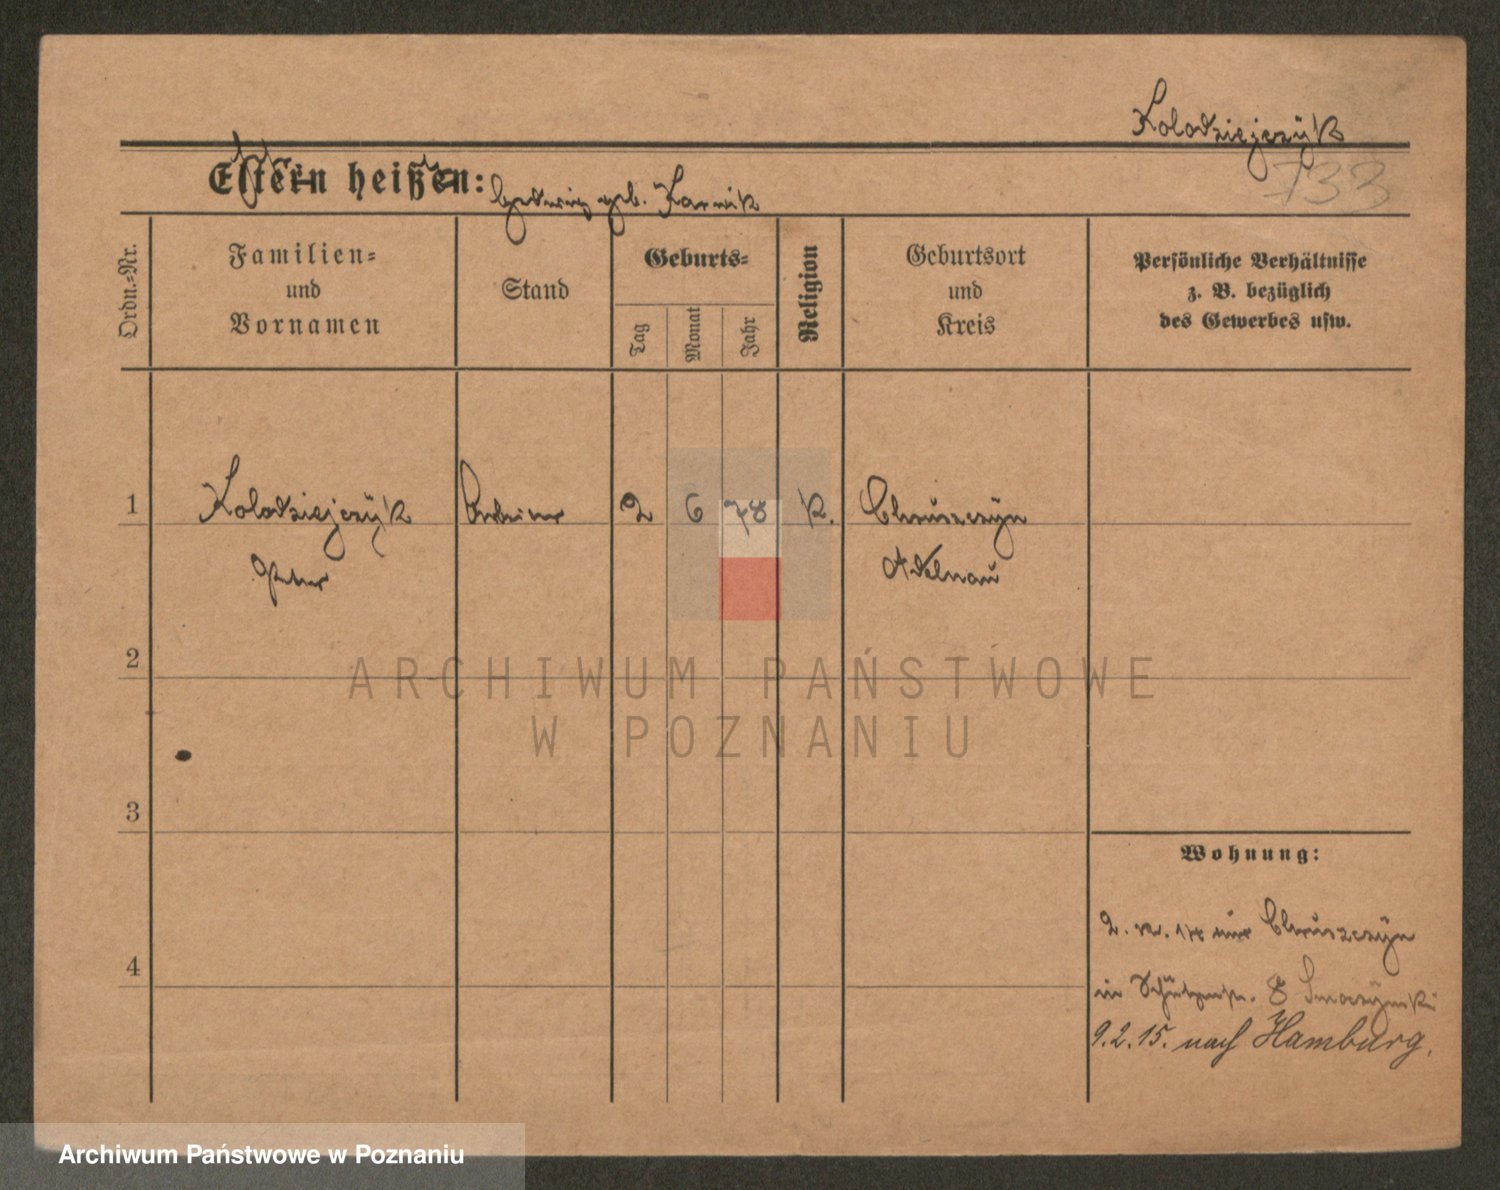 Kolodziejczyk
733
Eltern heißen: Hedwig geb. Karnik
Ordn.-Nr.
Familien-
und
Vornamen
Stand
Geburts-
Tag
Monat
Jahr
Religion
Geburtsort
und
Kreis
Persönliche Verhältnisse
z. B. bezüglich
des Gewerbes usw.
1
Kolodziejczyk
Peter
Arbeiter
2
6
78
K.
Chruszczyn
Adelnau
2
3
4
Wohnung:
aus Chruszczyn
in Schützenstr. 8 Smoczynski
9.2.15. nach Hamburg.
ARCHIWUM PAŃSTWOWE
W POZNANIU
Archiwum Państwowe w Poznaniu